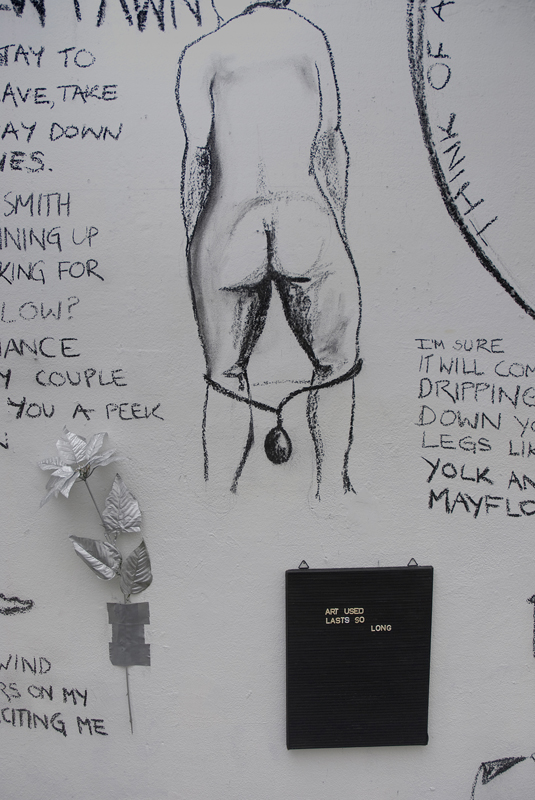 TAY TO
AVE, TAKE
AY DOWN
SMITH
NING UP
KING FOR
LOW?
IANCE
Y COUPLE
YOU A PEEK
THINK OF A
I'M SURE
IT WILL COM
DRIPPING
DOWN YO
LEGS LIK
YOLK AN
MAYFLO
ART USED
LASTS SO
LONG
WIND
RS ON MY
CITING ME